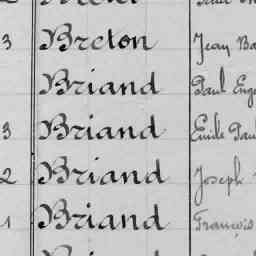 3 Breton Jean Ba
Briand Paul Eug
3 Briand Emile Pau
2 Briand Joseph
1 Briand François